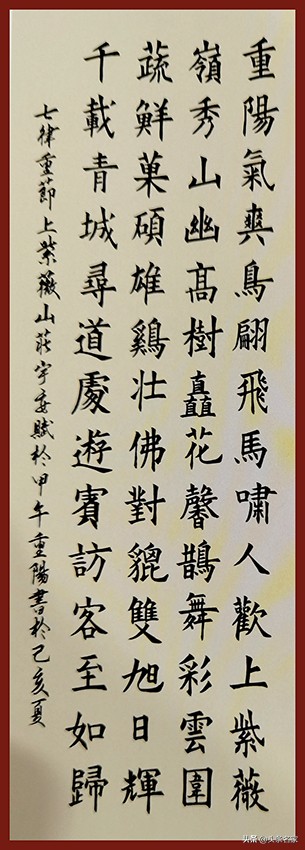 重陽氣爽鳥翩飛馬嘯人歡上紫薇
嶺秀山幽髙樹矗花馨鵲舞彩雲圍
蔬鮮菓碩雄鷄壯佛對貔雙旭日輝
千載青城尋道處遊賓訪客至如歸
七律重節上紫薇山莊宇賦於甲午重陽書於己亥夏
头条